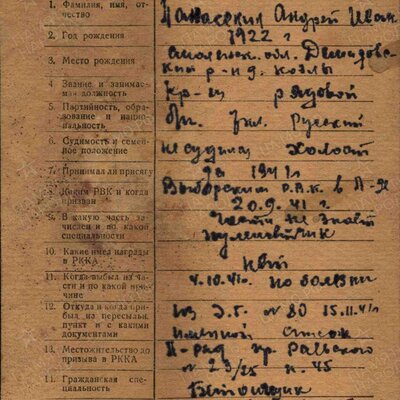 1. Фамилия, имя, от-
чество
Панасекин Андрей Иван
2. Год рождения
1922 г
3. Место рождения
Смоленск. обл. Демидовс-
кий р-н д. Козлы
4. Звание и занимае-
мая должность
Кр-ец рядовой
5. Партийность, обра-
зование и нацио-
нальность
5 кл. Русский
6. Судимость и семей-
ное положение
не судился Холост
7. Принимал ли присягу
да 1941 г
8. Каким РВК и когда
призван
Выборским Р.В.К. в Л-де
20.9.41 г.
9. В какую часть за-
числен и по какой
специальности
Части не знает
пулеметчик
10. Какие имел награды
в РККА
нет
11. Когда выбыл из ча-
сти и по какой при-
чине
4.10.41г. по болезни
12. Откуда и когда при-
был на пересыльн.
пункт и с какими
документами
из Э.Г. № 80 15.11.41г
именной список
13. Местожительство до
призыва в РККА
Л-град пр.
№ 23/25 к. 45
14. Гражданская спе-
циальность
Бетонщик